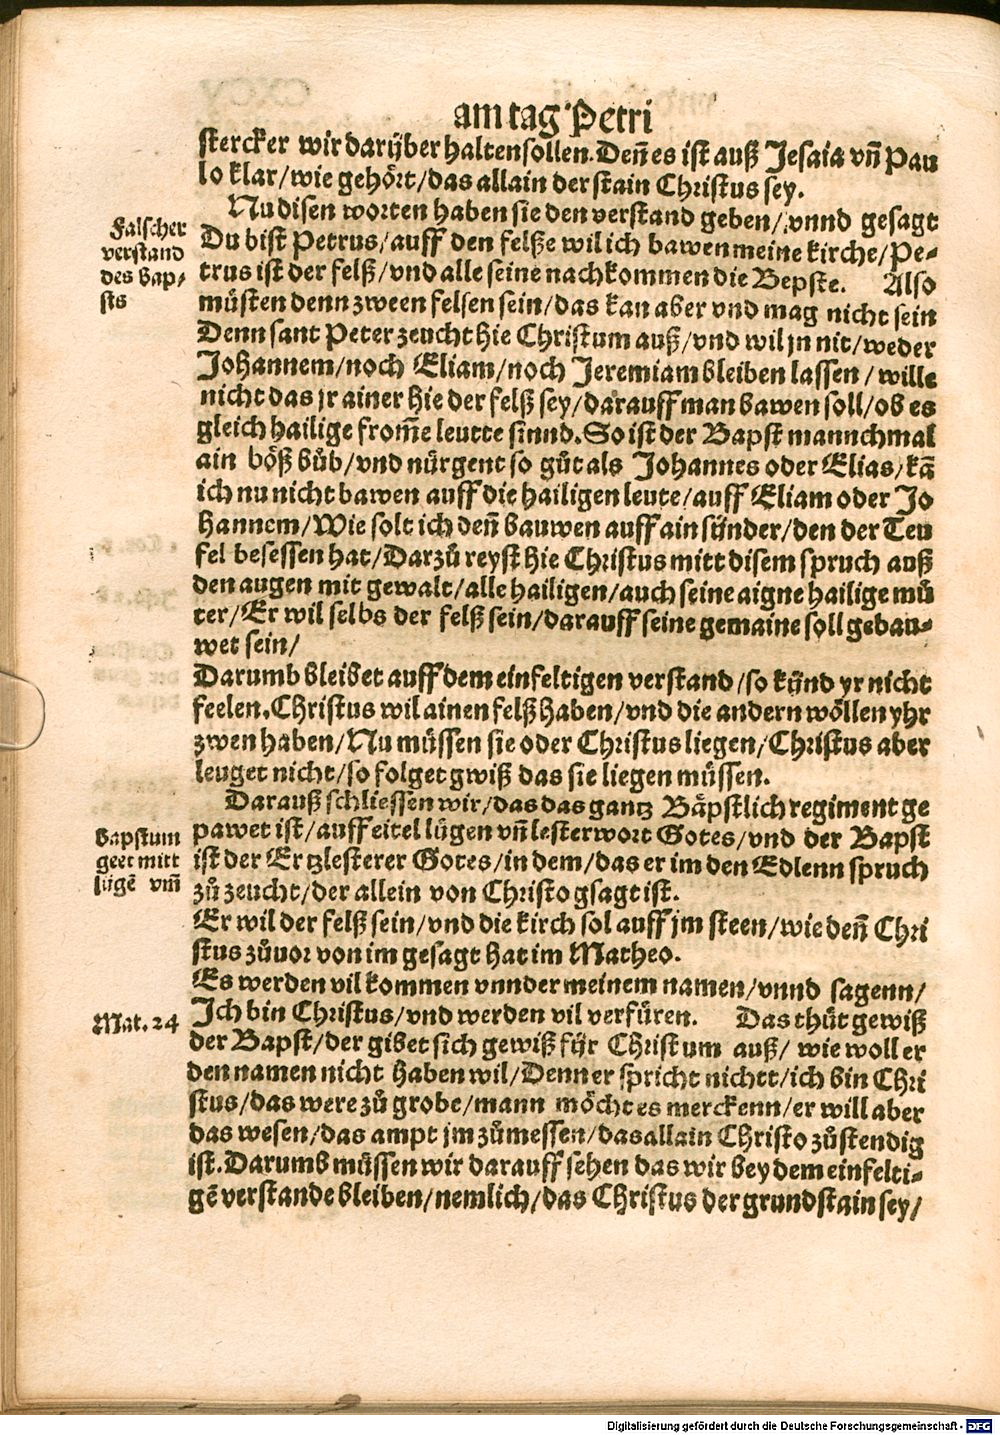 am tag Petri
stercker wir darüber halten sollen. Deñ es ist auß Jesaia vñ Pau
lo klar/wie gehört/das allain der stain Christus sey.
Nu disen worten haben sie den verstand geben/vnnd gesagt
Du bist Petrus/auff den felße wil ich bawen meine kirche/Pe-
trus ist der felß/vnd alle seine nachkommen die Bepste. Also
müsten denn zween felsen sein/das kan aber vnd mag nicht sein
Denn sant Peter zeucht hie Christum auß/vnd wil jn nit/weder
Johannem/noch Eliam/noch Jeremiam bleiben lassen/wille
nicht das jr ainer hie der felß sey/darauff man bawen soll/ob es
gleich hailige from̃e leutte sinnd. So ist der Bapst mannchmal
ain böß bůb/vnd nürgent so gůt als Johannes oder Elias/kã
ich nu nicht bawen auff die hailigen leute/auff Eliam oder Jo
hannem/Wie solt ich deñ bauwen auff ain sünder/den der Teu
fel besessen hat/Darzů reyst hie Christus mitt disem spruch auß
den augen mit gewalt/alle hailigen/auch seine aigne hailige mů
ter/Er wil selbs der felß sein/darauff seine gemaine soll gebau-
wet sein/
Darumb bleibet auff dem einfeltigen verstand/so künd yr nicht
feelen. Christus wil ainen felß haben/vnd die andern wöllen yhr
zwen haben/Nu müssen sie oder Christus liegen/Christus aber
leuget nicht/so folget gwiß das sie liegen müssen.
Darauß schliessen wir/das das gantz Bäpstlich regiment ge
pawet ist/auff eitel lügen vñ lesterwort Gotes/vnd der Bapst
ist der Ertzlesterer Gotes/in dem/das er im den Edlenn spruch
zů zeucht/der allein von Christo gsagt ist.
Er wil der felß sein/vnd die kirch sol auff jm steen/wie deñ Chri
stus zůuor von im gesagt hat im Matheo.
Es werden vil kommen vnnder meinem namen/vnnd sagenn/
Ich bin Christus/vnd werden vil verfüren. Das thůt gewiß
der Bapst/der gibet sich gewiß für Christum auß/ wie woll er
den namen nicht haben wil/Denn er spricht nichtt/ich bin Chri
stus/das were zů grobe/mann möcht es merckenn/er will aber
das wesen/das ampt jm zůmessen/das allain Christo zůstendig
ist. Darumb müssen wir darauff sehen das wir bey dem einfelti-
gẽ verstande bleiben/nemlich/das Christus der grundstain sey/
Falscher
verstand
des bap-
sts
bapstum
geet mitt
lügẽ vm̃
Mat. 24
Digitalisierung gefördert durch die Deutsche Forschungsgemeinschaft - DFG